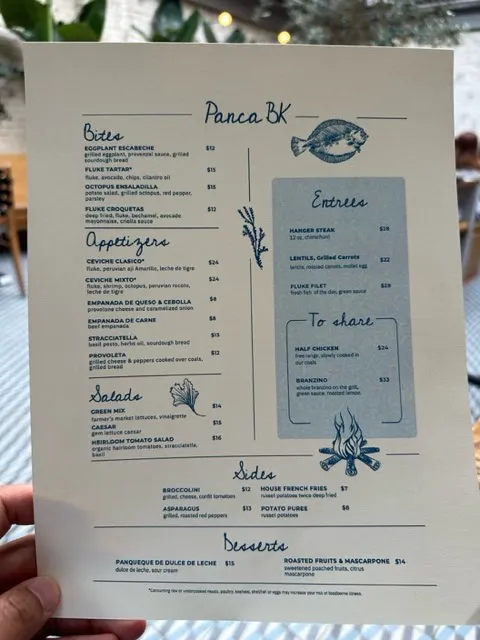 Panca BK
Bites
EGGPLANT ESCABECHE $12
grilled eggplant, provenzal sauce, grilled
sourdough bread
FLUKE TARTAR* $15
fluke, avocado, chips, cilantro oil
OCTOPUS ENSALADILLA $16
potato salad, grilled octopus, red pepper,
parsley
FLUKE CROQUETAS $12
deep fried, fluke, bechamel, avocado
mayonnaise, criolla sauce
Appetizers
CEVICHE CLASICO* $24
fluke, peruvian aji Amarillo, leche de tigre
CEVICHE MIXTO* $24
fluke, shrimp, octopus, peruvian rocoto,
leche de tigre
EMPANADA DE QUESO & CEBOLLA $8
provolone cheese and caramelized onion
EMPANADA DE CARNE $8
beef empanada
STRACCIATELLA $13
basil pesto, herbs oil, sourdough bread
PROVOLETA $12
grilled cheese & peppers cooked over coals,
grilled bread
Salads
GREEN MIX $14
farmer's market lettuces, vinaigrette
CAESAR $15
gem lettuce caesar
HEIRLOOM TOMATO SALAD $16
organic heirloom tomatoes, stracciatella,
basil
Entrees
HANGER STEAK $28
12 oz, chimichurri
LENTILS, Grilled Carrots $22
lentils, roasted carrots, mollet egg
FLUKE FILET $28
fresh fish of the day, green sauce
To share
HALF CHICKEN $24
free range, slowly cooked in
our coals
BRANZINO $33
whole branzino on the grill,
green sauce, roasted lemon
Sides
BROCCOLINI $12
grilled, cheese, confit tomatoes
HOUSE FRENCH FRIES $7
russet potatoes twice deep fried
ASPARAGUS $13
grilled, roasted red peppers
POTATO PUREE $8
russet potatoes
Desserts
PANQUEQUE DE DULCE DE LECHE $15
dulce de leche, sour cream
ROASTED FRUITS & MASCARPONE $14
sweetened poached fruits, citrus
mascarpone
*Consuming raw or undercooked meats, poultry, seafood, shellfish or eggs may increase your risk of foodborne illness.